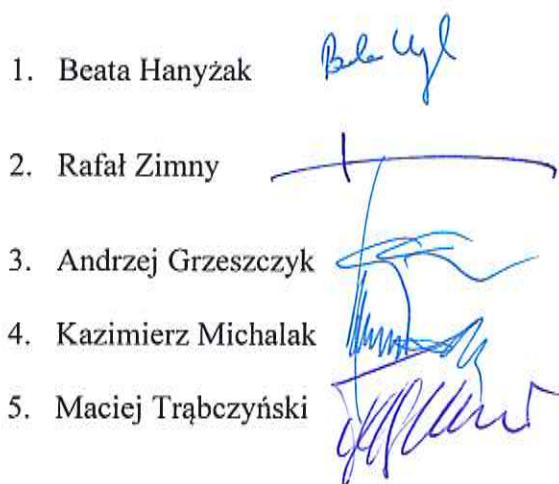 1. Beata Hanyżak
2. Rafał Zimny
3. Andrzej Grzeszczyk
4. Kazimierz Michalak
5. Maciej Trąbczyński